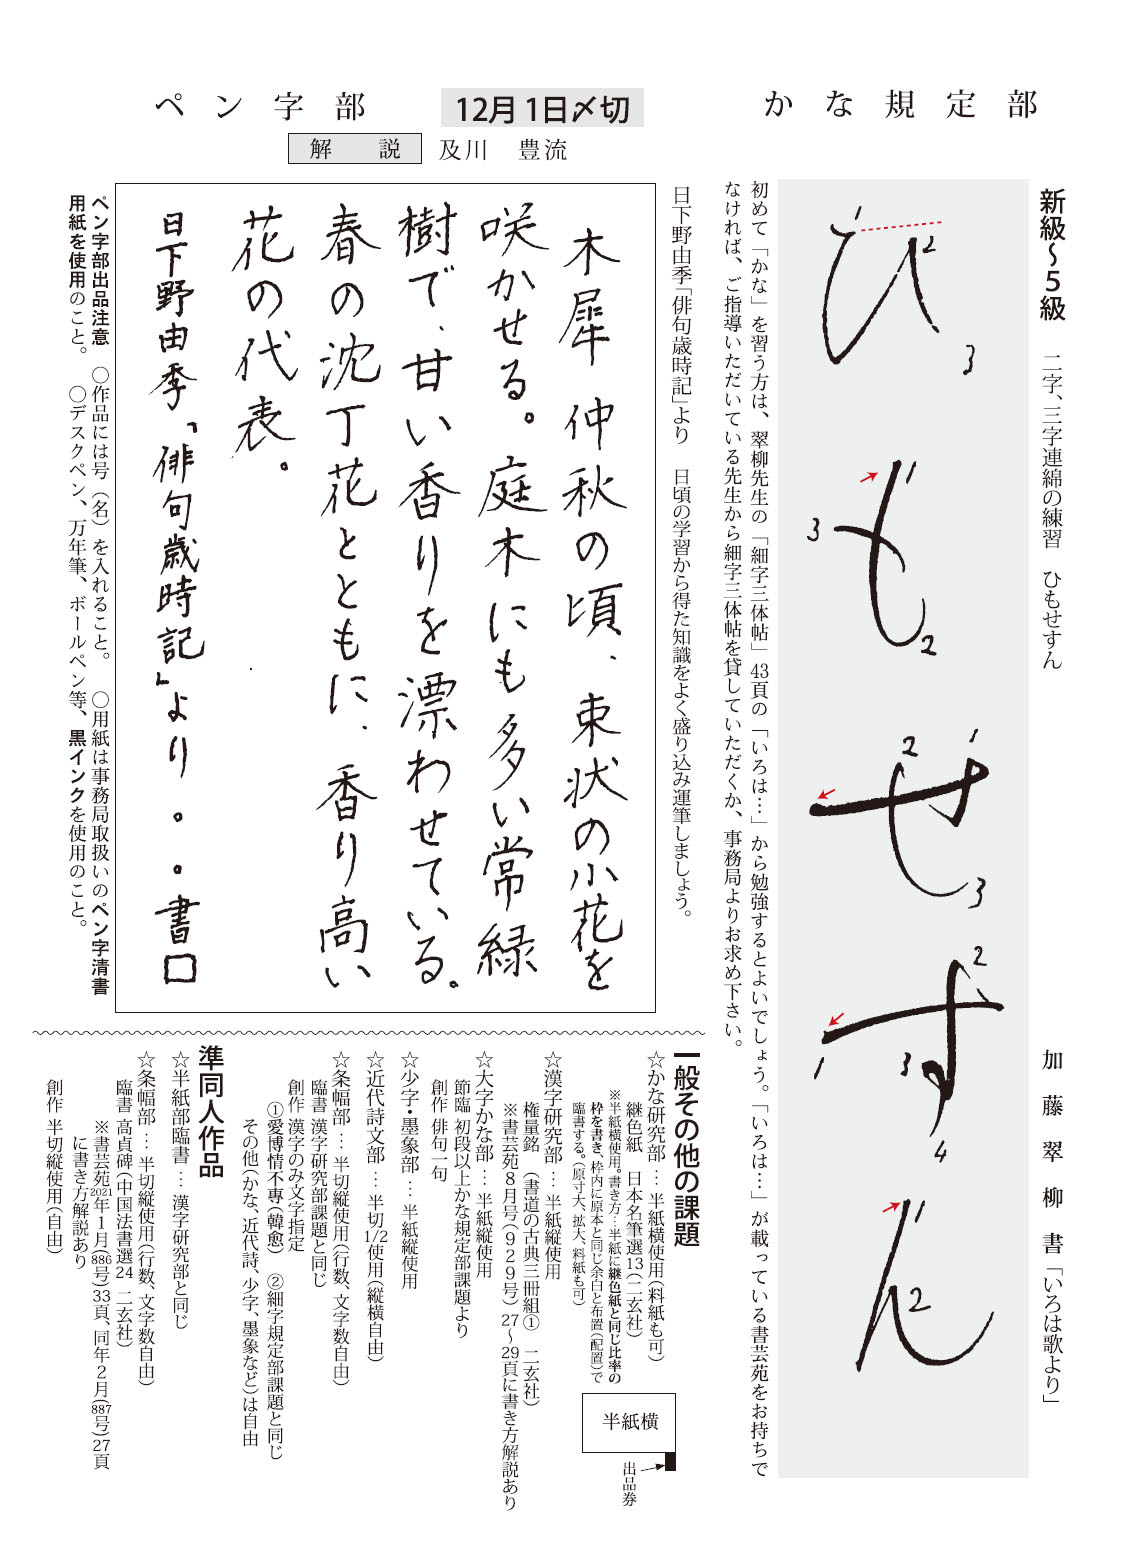 かな規定部
12月1日〆切
ペン字部
解　説　及川　豊流
新級〜5級　二字、三字連綿の練習　ひもせすん
加藤翠柳書「いろは歌より」
ひもせすん
1
2
3
1
2
3
1
2
3
1
2
3
4
1
2
初めて「かな」を習う方は、翠柳先生の「細字三体帖」43頁の「いろは…」から勉強するとよいでしょう。「いろは…」が載っている書芸苑をお持ちで
なければ、ご指導いただいている先生から細字三体帖を貸していただくか、事務局よりお求め下さい。
日下野由季「俳句歳時記」より　日頃の学習から得た知識をよく盛り込み運筆しましょう。
木犀　仲秋の頃、束状の小花を
咲かせる。庭木にも多い常緑
樹で、甘い香りを漂わせている。
春の沈丁花とともに、香り高い
花の代表。
日下野由季「俳句歳時記」より。。書口
ペン字部出品注意　○作品には号（名）を入れること。　○用紙は事務局取扱いのペン字清書
用紙を使用のこと。　○デスクペン、万年筆、ボールペン等、黒インクを使用のこと。
一般その他の課題
☆かな研究部…半紙横使用（料紙も可）
継色紙　日本名筆選13（二玄社）
※半紙横使用。書き方…半紙に継色紙と同じ比率の
枠を書き、枠内に原本と同じ余白と布置（配置）で
臨書する。（原寸大、拡大、料紙も可）
半紙横
出品券
☆漢字研究部…半紙縦使用
権量銘　（書道の古典三冊組①　二玄社）
※書芸苑8月号（929号）27〜29頁に書き方解説あり
☆大字かな部…半紙縦使用
節臨 初段以上かな規定部課題より
創作 俳句一句
☆少字・墨象部…半紙縦使用
☆近代詩文部…半切1/2使用（縦横自由）
☆条幅部…半切縦使用（行数、文字数自由）
臨書 漢字研究部課題と同じ
創作 漢字のみ文字指定
①愛博情不専（韓愈）　②細字規定部課題と同じ
その他（かな、近代詩、少字、墨象など）は自由
準同人作品
☆半紙部臨書…漢字研究部と同じ
☆条幅部…半切縦使用（行数、文字数自由）
臨書 高貞碑（中国法書選24　二玄社）
※書芸苑2021年1月（886号）33頁、同年2月（887号）27頁
に書き方解説あり
創作 半切縦使用（自由）